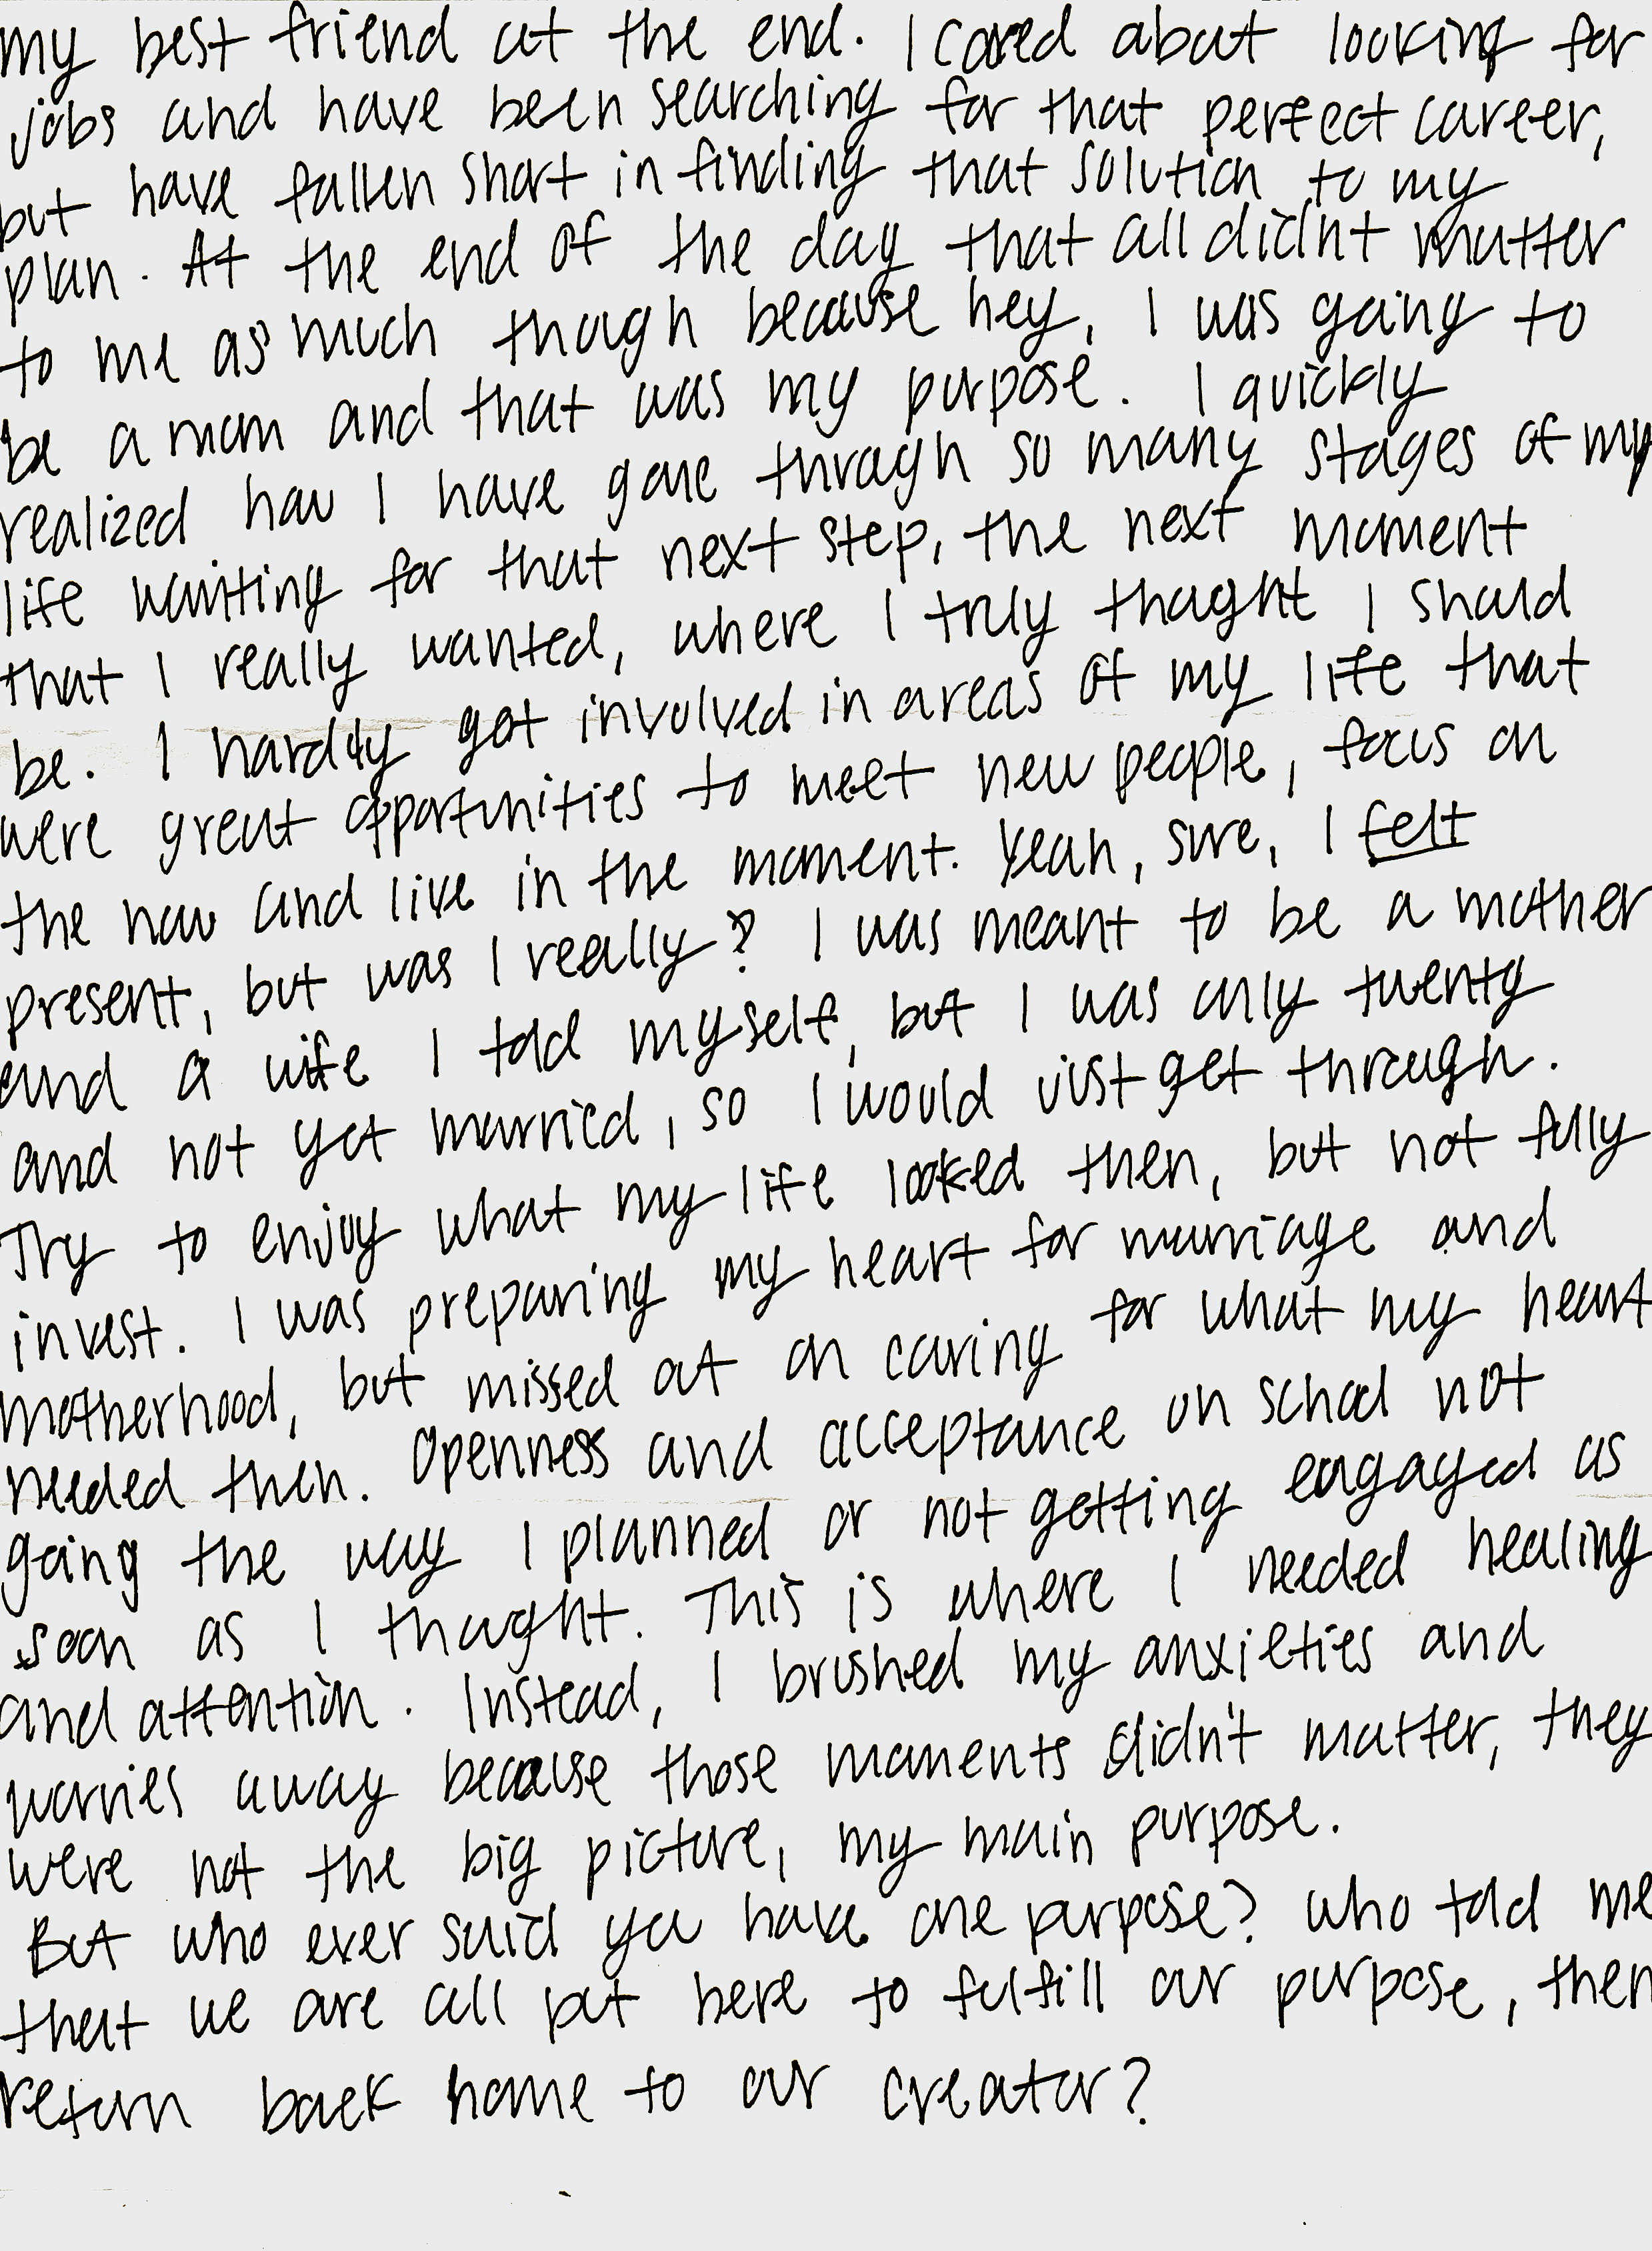 my best friend at the end. I cared about looking for
jobs and have been searching for that perfect career,
but have fallen short in finding that solution to my
plan. At the end of the day that all didnt matter
to me as much though because hey, I was going to
be a mom and that was my purpose. I quickly
realized how I have gone through so many stages of my
life waiting for that next step, the next moment
that I really wanted, where I truly thought I should
be. I hardly got involved in areas of my life that
were great opportunities to meet new people, focus on
the now and live in the moment. Yeah, sure, I felt
present, but was I really? I was meant to be a mother
and a wife I told myself, but I was only twenty
and not yet married, so I would just get through.
Try to enjoy what my life looked then, but not fully
invest. I was preparing my heart for marriage and
motherhood, but missed out on caring for what my heart
needed then. Openness and acceptance on school not
going the way I planned or not getting engaged as
soon as I thought. This is where I needed healing
and attention. Instead, I brushed my anxieties and
worries away because those moments didn't matter, they
were not the big picture, my main purpose.
But who ever said you have one purpose? Who told me
that we are all put here to fulfill our purpose, then
return back home to our creator?